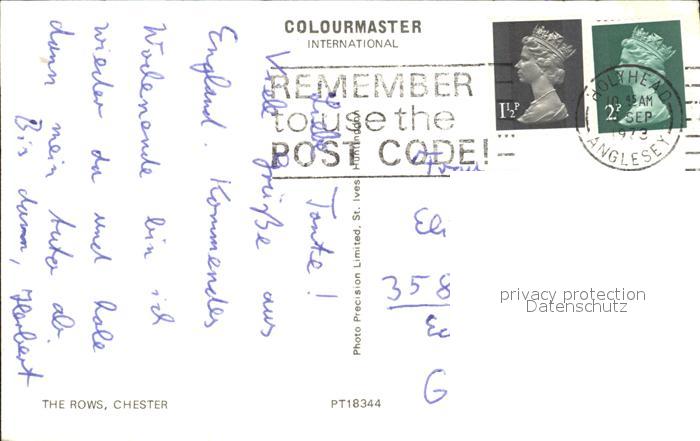 COLOURMASTER
INTERNATIONAL
REMEMBER
to use the
POST CODE!
1½P
2P
HOLYHEAD
45 AM
SEP
1973
ANGLESEY
Liebe Tante!
Viele Grüße aus
England. Kommendes
Wochenende bin ich
wieder da und hole
dann mein Auto ab.
Bis dann, Herbert
Photo Precision Limited, St. Ives Huntingdon
Frau
Eli
358
W
G
privacy protection
Datenschutz
THE ROWS, CHESTER
PT18344